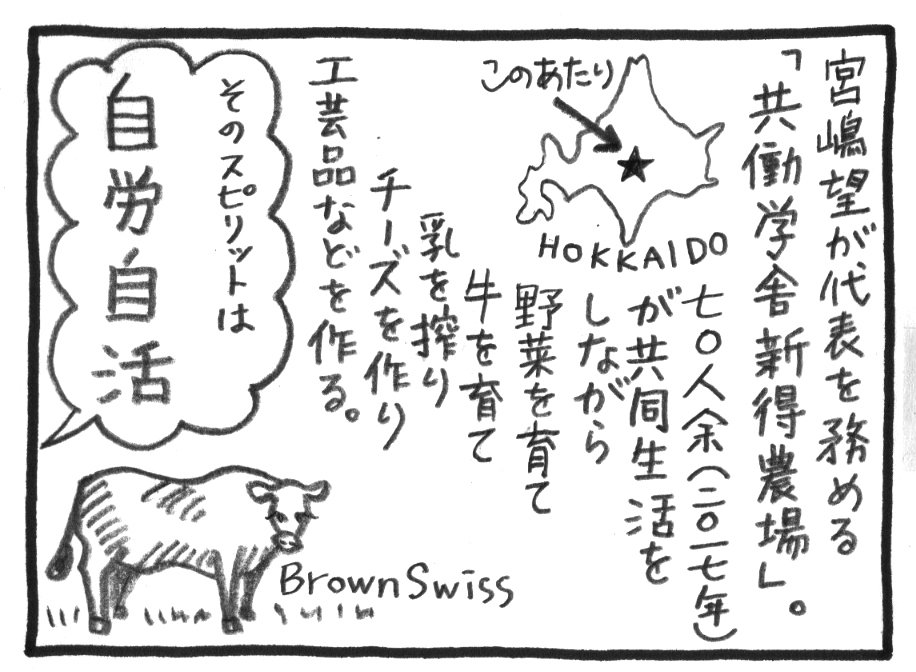 宮嶋望が代表を務める
「共働学舎新得農場」。
このあたり
HOKKAIDO
七〇人余(二〇一七年)
が共同生活を
しながら
野菜を育て
牛を育て
乳を搾り
チーズを作り
工芸品などを作る。
そのスピリットは
自労自活
Brown Swiss